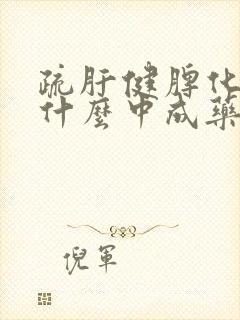 疏肝健脾化
什麼中成藥
倪軍